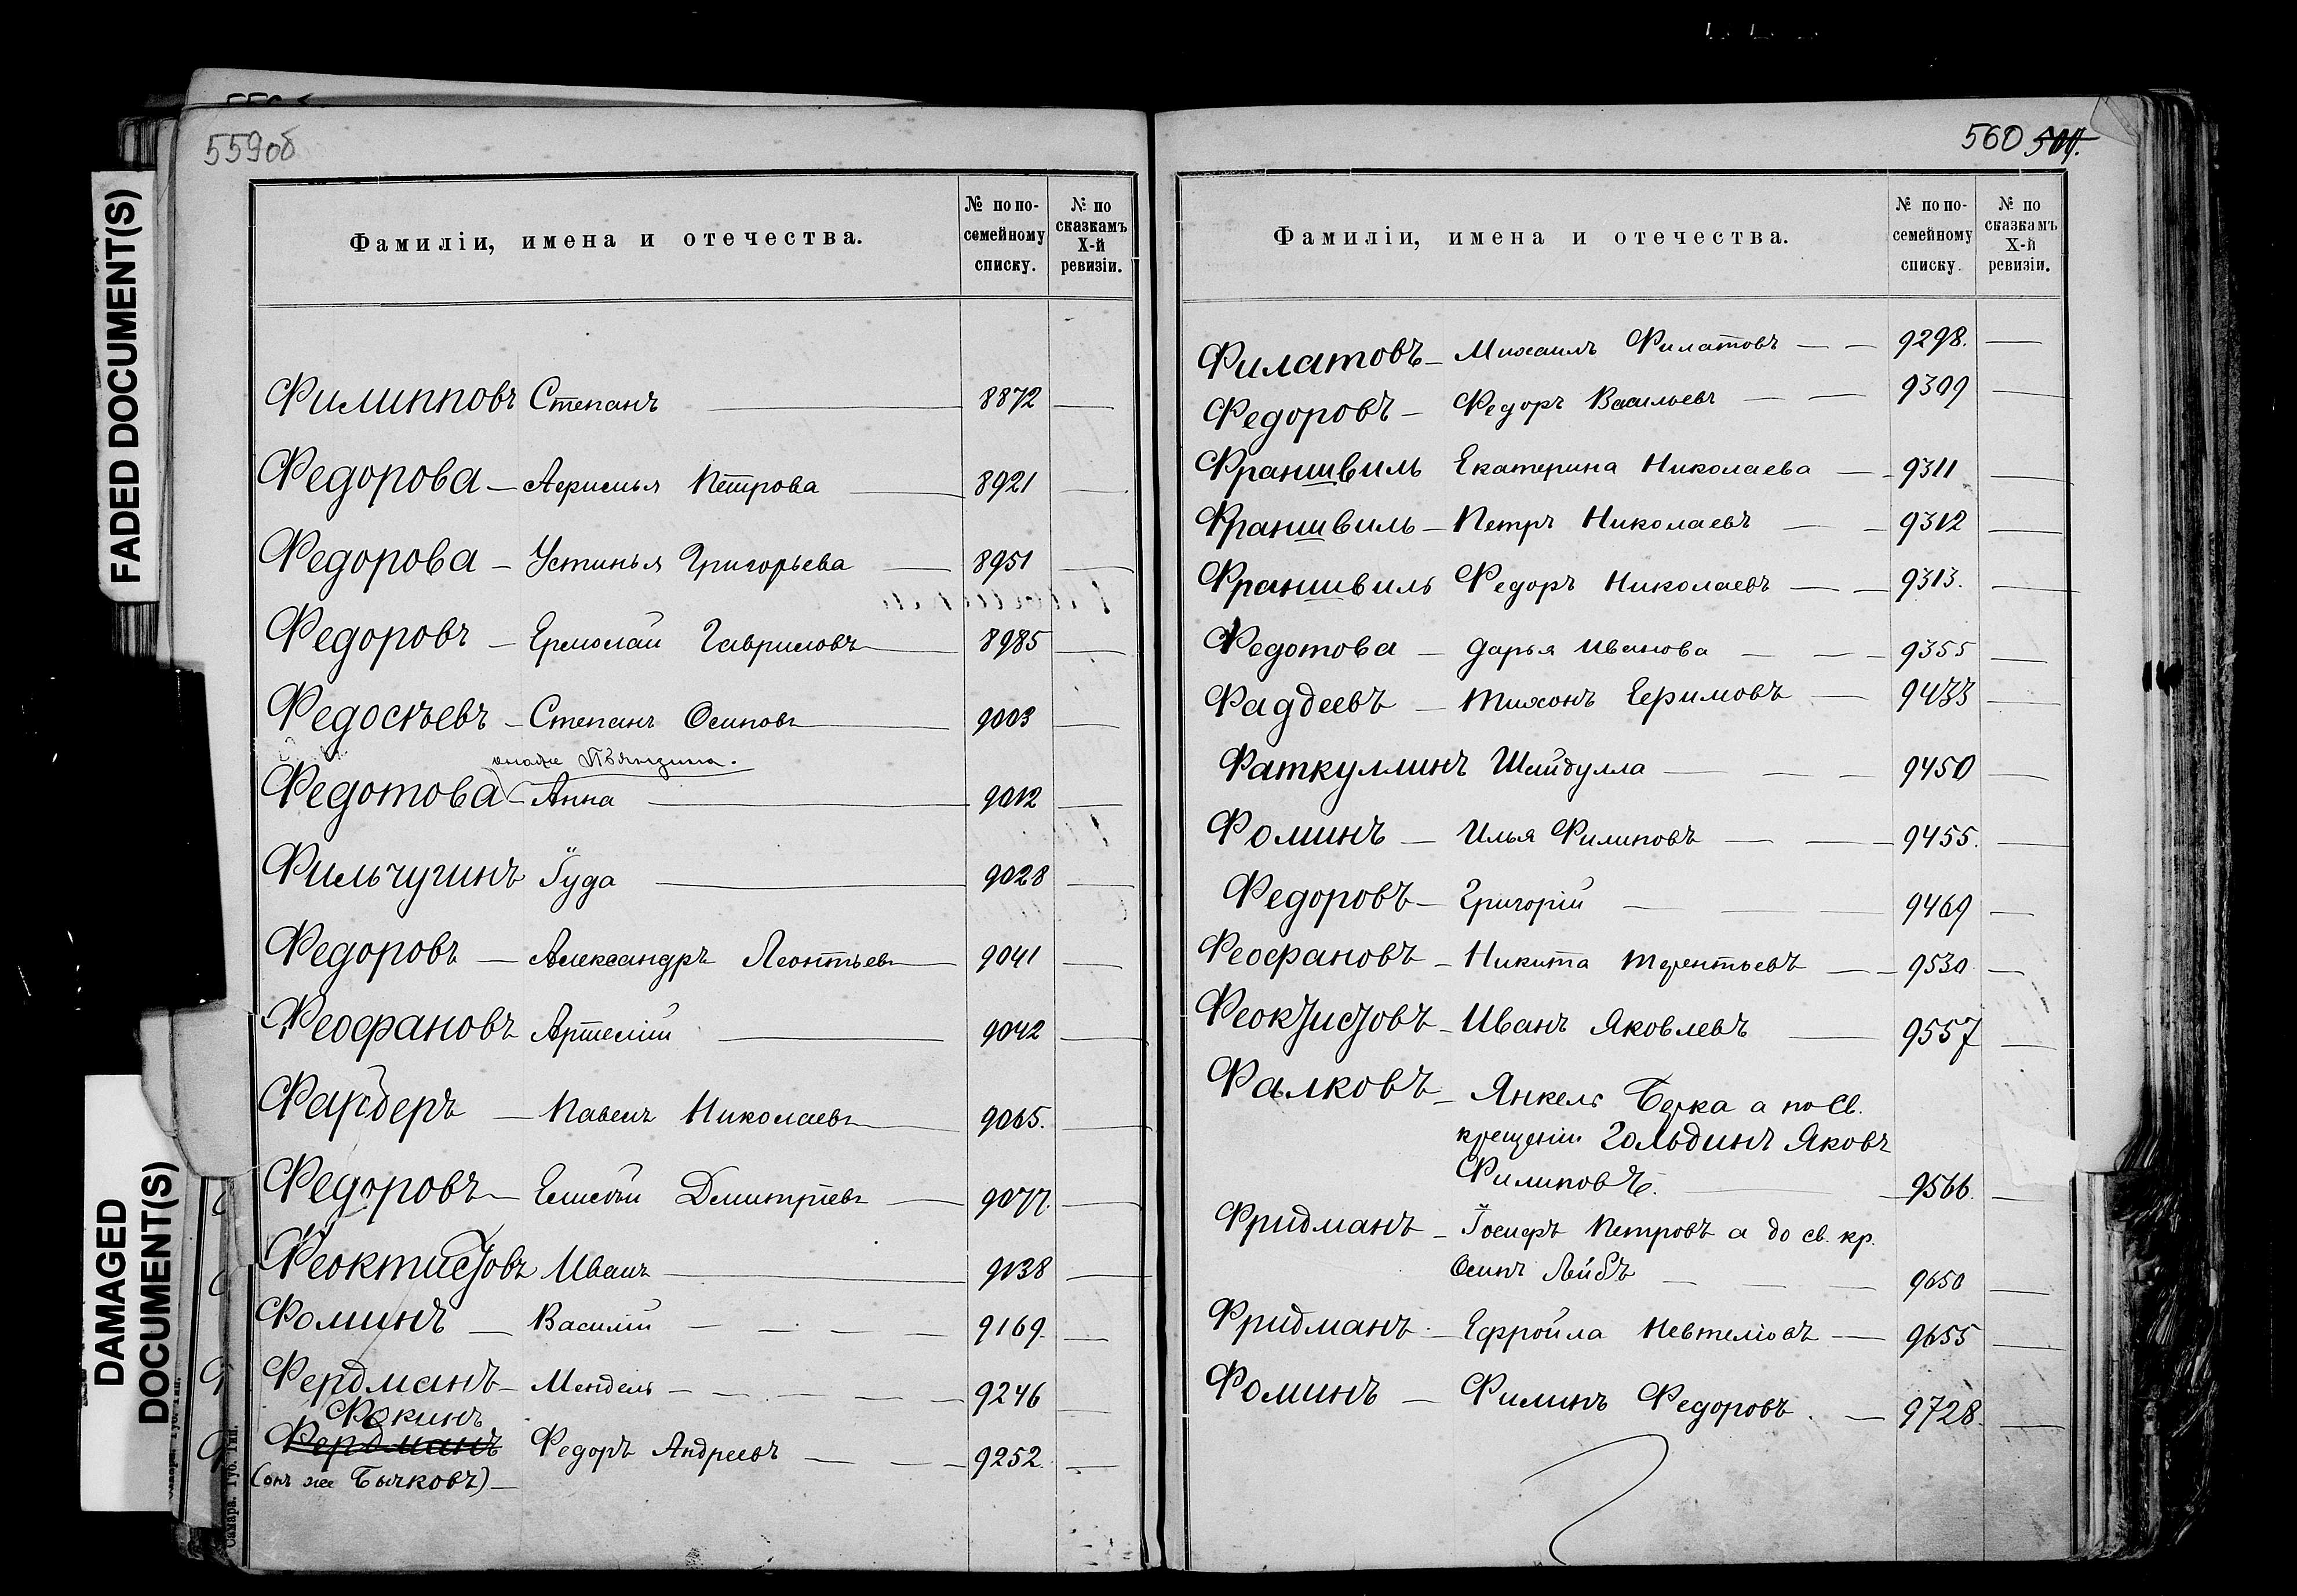 559об
Фамиліи, имена и отечества. № по по-семейному списку. № по сказкамъ X-й ревизіи.
Филипповъ Степанъ — 8872 —
Федорова — Аѳимья Петрова — 8921 —
Федорова — Устинья Григорьева — 8951 —
Федоровъ — Ермолай Гавриловъ — 8985 —
Федосѣевъ — Степанъ Осиповъ — 9003 —
онаже
Федотова — Анна — 9012 —
Фильчугинъ Іуда — 9028 —
Федоровъ — Александръ Леонтьевъ — 9041 —
Феофановъ Артемій — 9042 —
— Павелъ Николаевъ — 9065. —
Федоровъ — Елисѣй Димитріевъ — 9077. —
Феоктистовъ Иванъ — 9138 —
Фоминъ — Василій — — — — 9169. —
Фердманъ — Мендель — — — — — 9246 —
Фокинъ
Фердманъ Федоръ Андреевъ — — — 9252. —
(онъ же Бычковъ) —
560
Фамиліи, имена и отечества. № по по-семейному списку. № по сказкамъ X-й ревизіи.
Филатовъ — Михаилъ Филатовъ — — 9298. —
Федоровъ — Федоръ Васильевъ — — 9309 —
Franшвиль Екатерина Николаева — 9311 —
Франшвиль — Петръ Николаевъ — — 9312 —
Франшвиль Федоръ Николаевъ — — 9313. —
Федотова — Дарья Иванова — — — 9355 —
Фаддеевъ — Тихонъ Ефимовъ — 9433 —
Фаткуллинъ Шайдулла — — — 9450 —
Фоминъ — Илья Филиповъ — — 9455. —
Федоровъ — Григорій — — — 9469 —
Феофановъ — Никита Терентьевъ — — 9530 —
Феоктистовъ — Иванъ Яковлевъ — 9557 —
Фалковъ — Янкель Берка а по Св.
крещеніи Гольдинъ Яковъ
Филиповъ. — 9566. —
Фридманъ — Іосифъ Петровъ а до св. кр.
Осипъ Лейбъ — — — 9650 —
Фридманъ — Ефройла Невтеліовъ — 9655 —
Фоминъ — Филипъ Федоровъ. — 9728. —
FADED DOCUMENT(S)
DAMAGED
DOCUMENT(S)